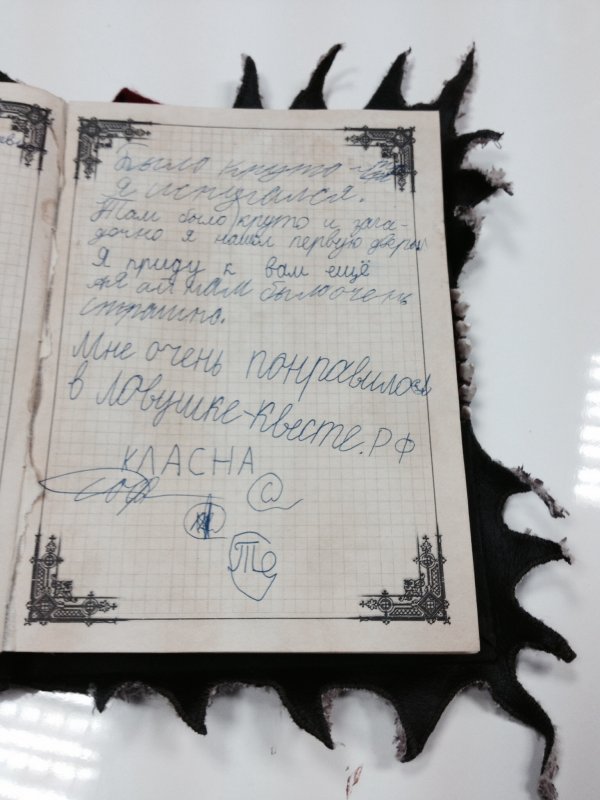 Было круто
я испугался.
Там было круто и зага-
дочно я нашол первую дверь
Я приду к вам ещё
там было очень
страшно.
Мне очень понравилось
в Ловушке-Квесте.РФ
КЛАСНА